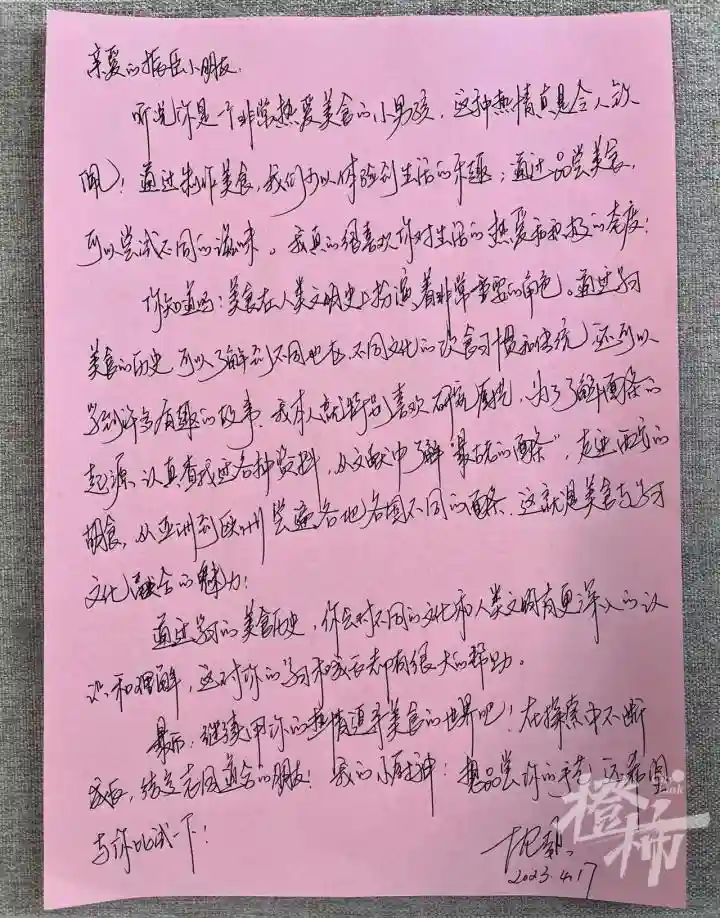 亲爱的振岳小朋友：
听说你是一个非常热爱美食的小男孩，这种热情真是令人钦
佩！通过制作美食，我们可以体验到生活的乐趣；通过品尝美食，
可以尝试不同的滋味。我真的很喜欢你对生活的热爱和积极的态度！
你知道吗？美食在人类文明史上扮演着非常重要的角色。通过学习
美食的历史，可以了解到不同地区、不同文化的饮食习惯和传统，还可以
学到许多有趣的故事。我本人就特别喜欢研究面条，为了了解面条的
起源，认真查找过各种资料，从文献中了解“最古老的面条”，走近西方的
胡食，从亚洲到欧洲尝遍各地各国不同的面条，这就是美食与学习
文化融合的魅力！
通过学习的美食历史，你会对不同的文化和人类文明有更深入的认
识和理解，这对你的学习和成长都有很大的帮助。
最后，继续用你的热情追寻美食的世界吧！在探索中不断
成长，结交志同道合的朋友！我的小厨神：想品尝你的手艺，还希望
与你比试一下！
2023.4.17
橙柿